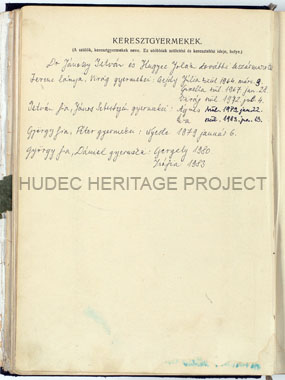 KERESZTGYERMEKEK.
(A szülők, keresztgyermekek neve. Ez utóbbiak születési és keresztelési ideje, helye.)
Dr Jánossy István és Huszár Jolán
Ferenc lánya, Virág gyermekei: Júlia szül 1964. márc 9.
szül. 1967 jan 28.
Virág szül. 1972 4.
István fia, János Sebestyén gyermekei: Ágnes szül. 1972 jan. 22.
szül. 1983.
György fia, Péter gyermeke: 1979 január 6.
György fia, Dániel gyermeke: Gergely 1980
Zsófia 1983
HUDEC HERITAGE PROJECT